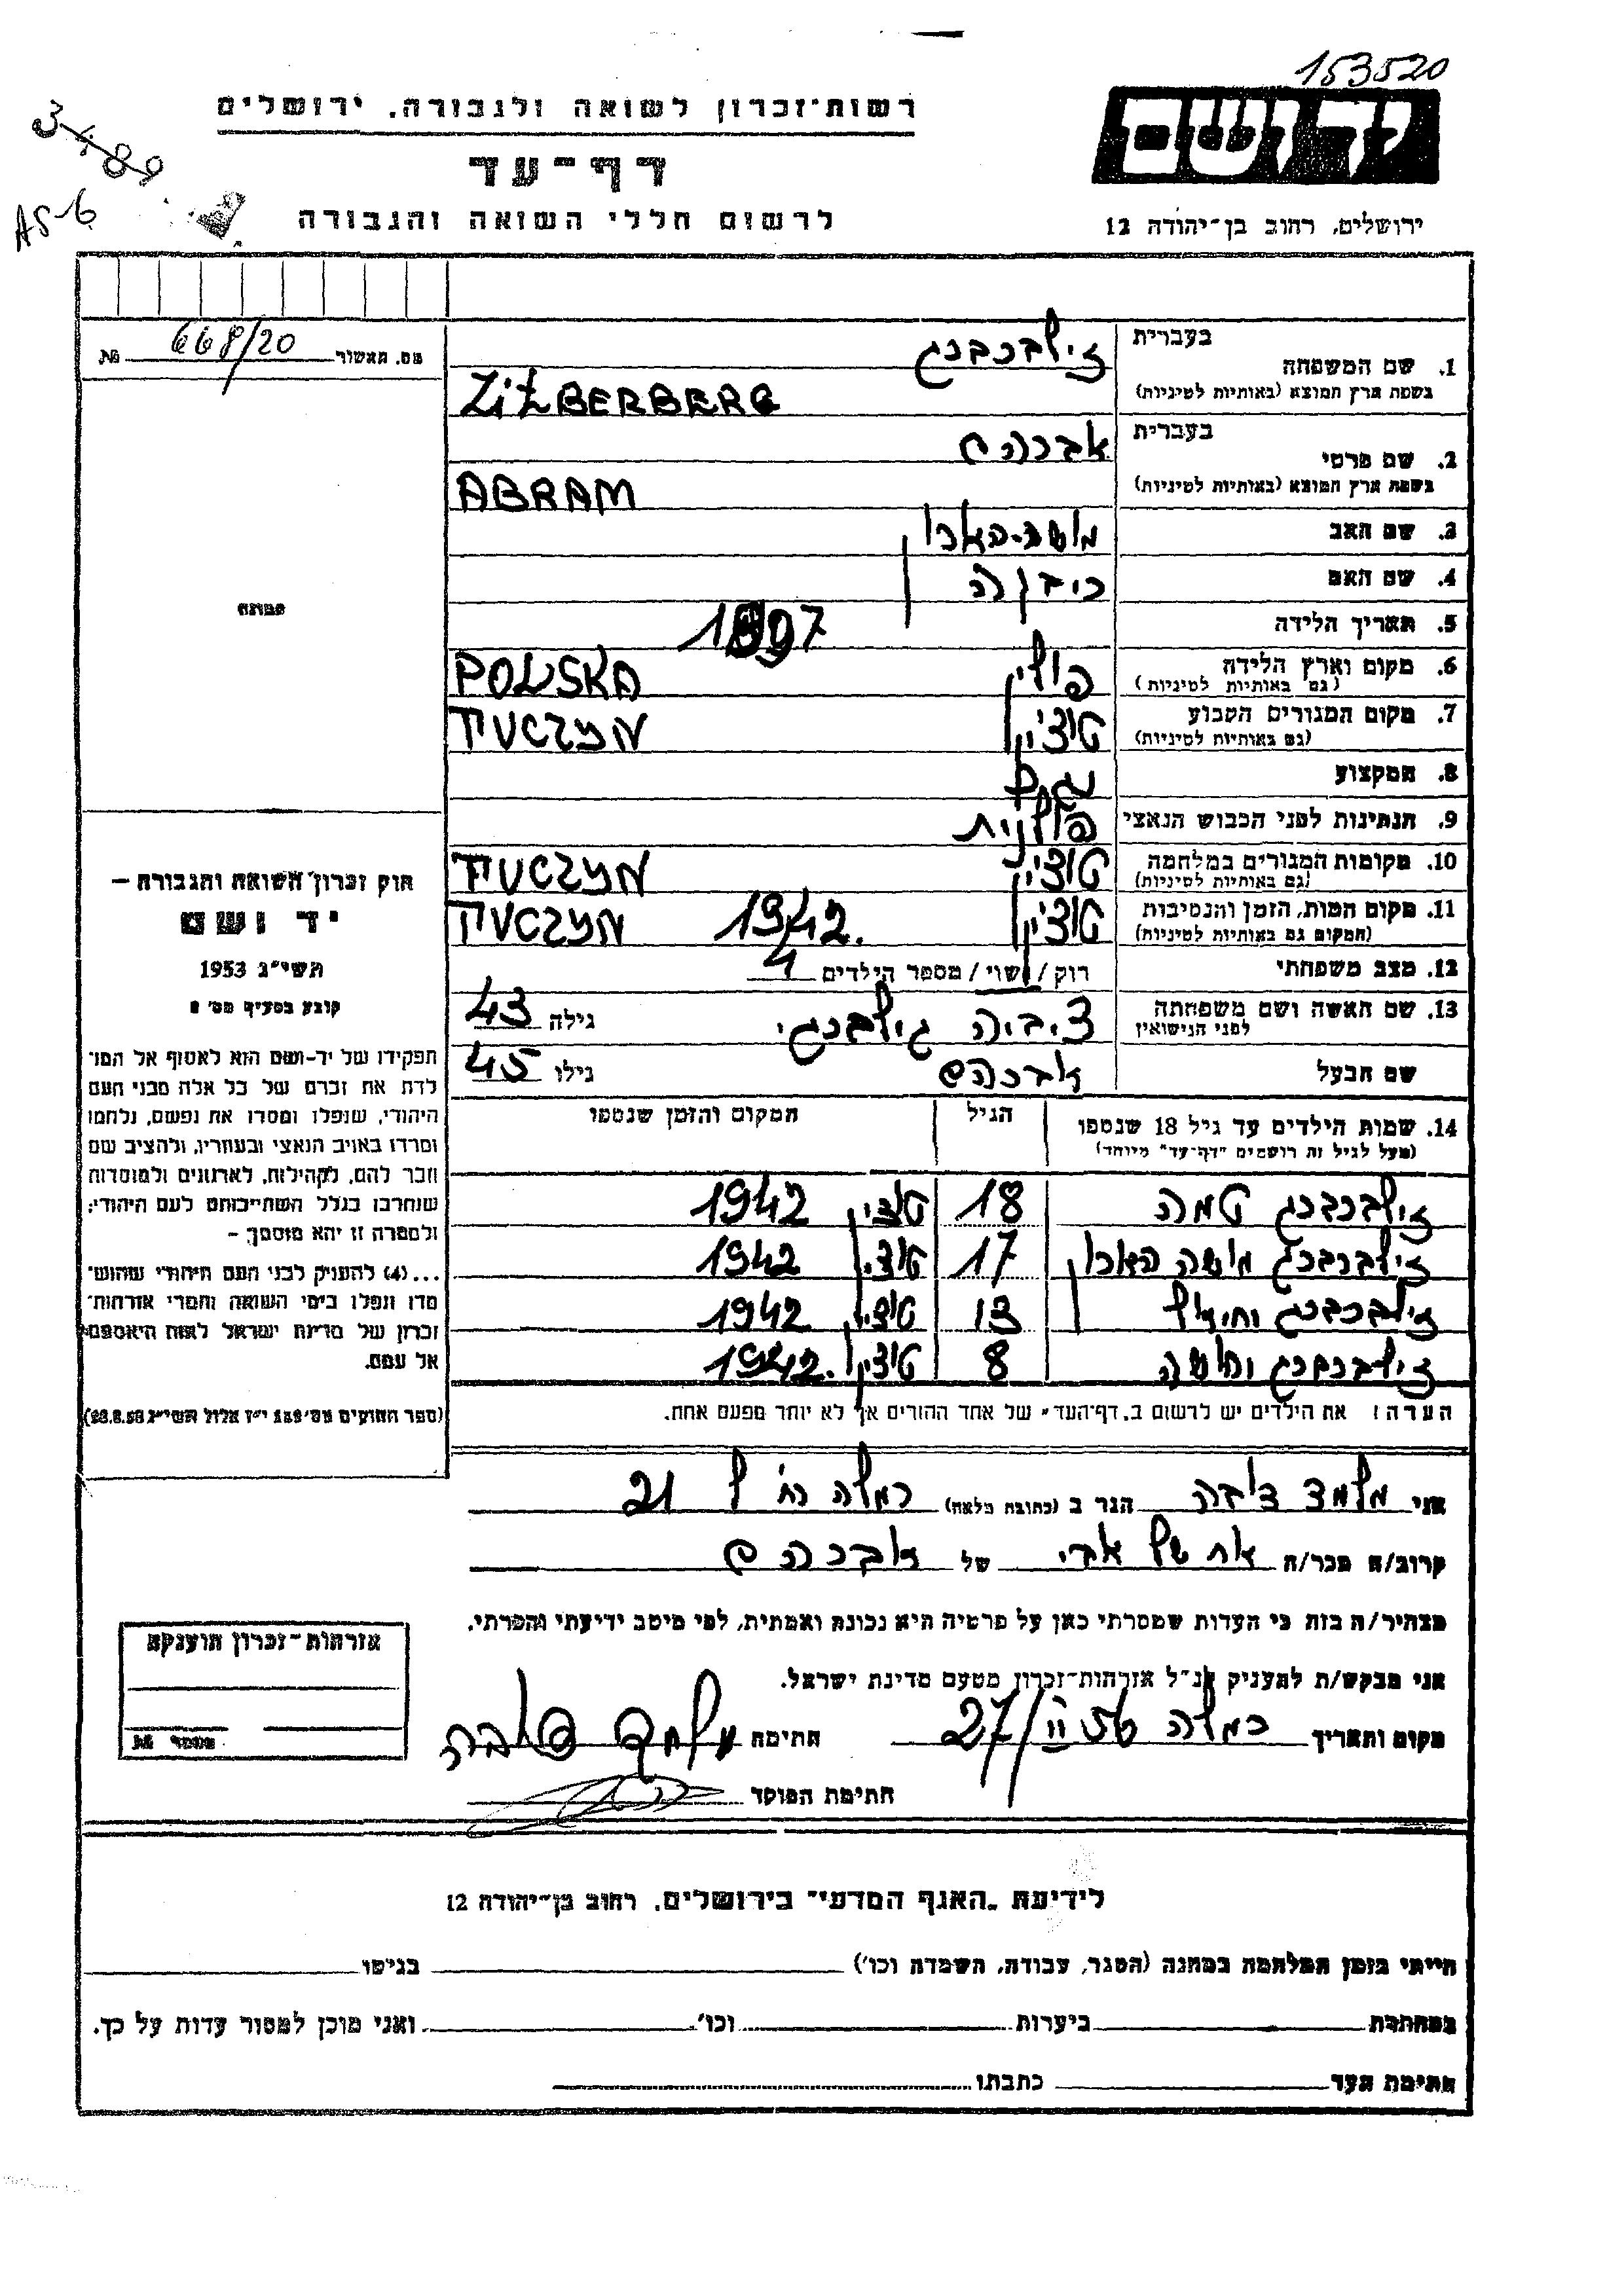 153520
יד ושם
ירושלים, רחוב בן-יהודה 12
רשות-זכרון לשואה ולגבורה, ירושלים
דף-עד
לרשום חללי השואה והגבורה
3489
AS-6
מס. האשור 668/20 №
1. שם המשפחה בעברית זילברברג
בשפת ארץ המוצא (באותיות לטיניות) ZILBERBERG
2. שם פרטי בעברית אברהם
בשפת ארץ המוצא (באותיות לטיניות) ABRAM
3. שם האב משה-אהרן
4. שם האם
5. תאריך הלידה 1897
6. מקום וארץ הלידה פולין POLSKA
(גם באותיות לטיניות)
7. מקום המגורים הקבוע טוצין TUCZYN
(גם באותיות לטיניות)
8. המקצוע
9. הנתינות לפני הכבוש הנאצי פולנית
10. מקומות המגורים במלחמה טוצין TUCZYN
(גם באותיות לטיניות)
11. מקום המות, הזמן והנסיבות טוצין 1942. TUCZYN
(המקום גם באותיות לטיניות)
12. מצב משפחתי רוק / נשוי / מספר הילדים 4
13. שם האשה ושם משפחתה לפני הנישואין ציביה גילה 43
שם הבעל אברהם גילו 45
14. שמות הילדים עד גיל 18 שנספו הגיל המקום והזמן שנספו
(מעל לגיל זה רושמים "דף-עד" מיוחד)
זילברברג 18 טוצין 1942
זילברברג משה אהרן 17 טוצין 1942
זילברברג 13 טוצין 1942
זילברברג 8 טוצין 1942.
הערה: את הילדים יש לרשום ב"דף-העד" של אחד ההורים אך לא יותר מפעם אחת.
תמונה
חוק זכרון השואה והגבורה –
יד ושם
תשי"ג 1953
קובע בסעיף מס' 2
תפקידו של יד-ושם הוא לאסוף אל המו־
לדת את זכרם של כל אלה מבני העם
היהודי, שנפלו ומסרו את נפשם, נלחמו
ומרדו באויב הנאצי ובעוזריו, ולהציב שם
וזכר להם, לקהילות, לארגונים ולמוסדות
שנחרבו בגלל השתייכותם לעם היהודי;
ולמטרה זו יהא מוסמך –
...(4) להעניק לבני העם היהודי שהוש־
מדו ונפלו בימי השואה והמרי אזרחות־
זכרון של מדינת ישראל לאות היאספם
אל עמם.
(ספר החוקים מס' 132 י"ז אלול תשי"ג 28.8.53)
אני מלמד הגר ב (כתובת מלאה) רמלה רח' 21
קרוב/ה מכר/ה אח של אבי של אברהם
מצהיר/ה בזה כי העדות שמסרתי כאן על פרטיה היא נכונה ואמתית, לפי מיטב ידיעתי והכרתי.
אני מבקש/ת להעניק לנ"ל אזרחות-זכרון מטעם מדינת ישראל.
מקום ותאריך רמלה 27/II 56 חתימה
חתימת הפוקד
אזרחות-זכרון הוענקה
מספר №
לידיעת "האגף המדעי" בירושלים, רחוב בן-יהודה 12
הייתי בזמן המלחמה במחנה (הסגר, עבודה, השמדה וכו') בגיטו
במחתרת ביערות וכו'. ואני מוכן למסור עדות על כך.
חתימת העד כתבתו